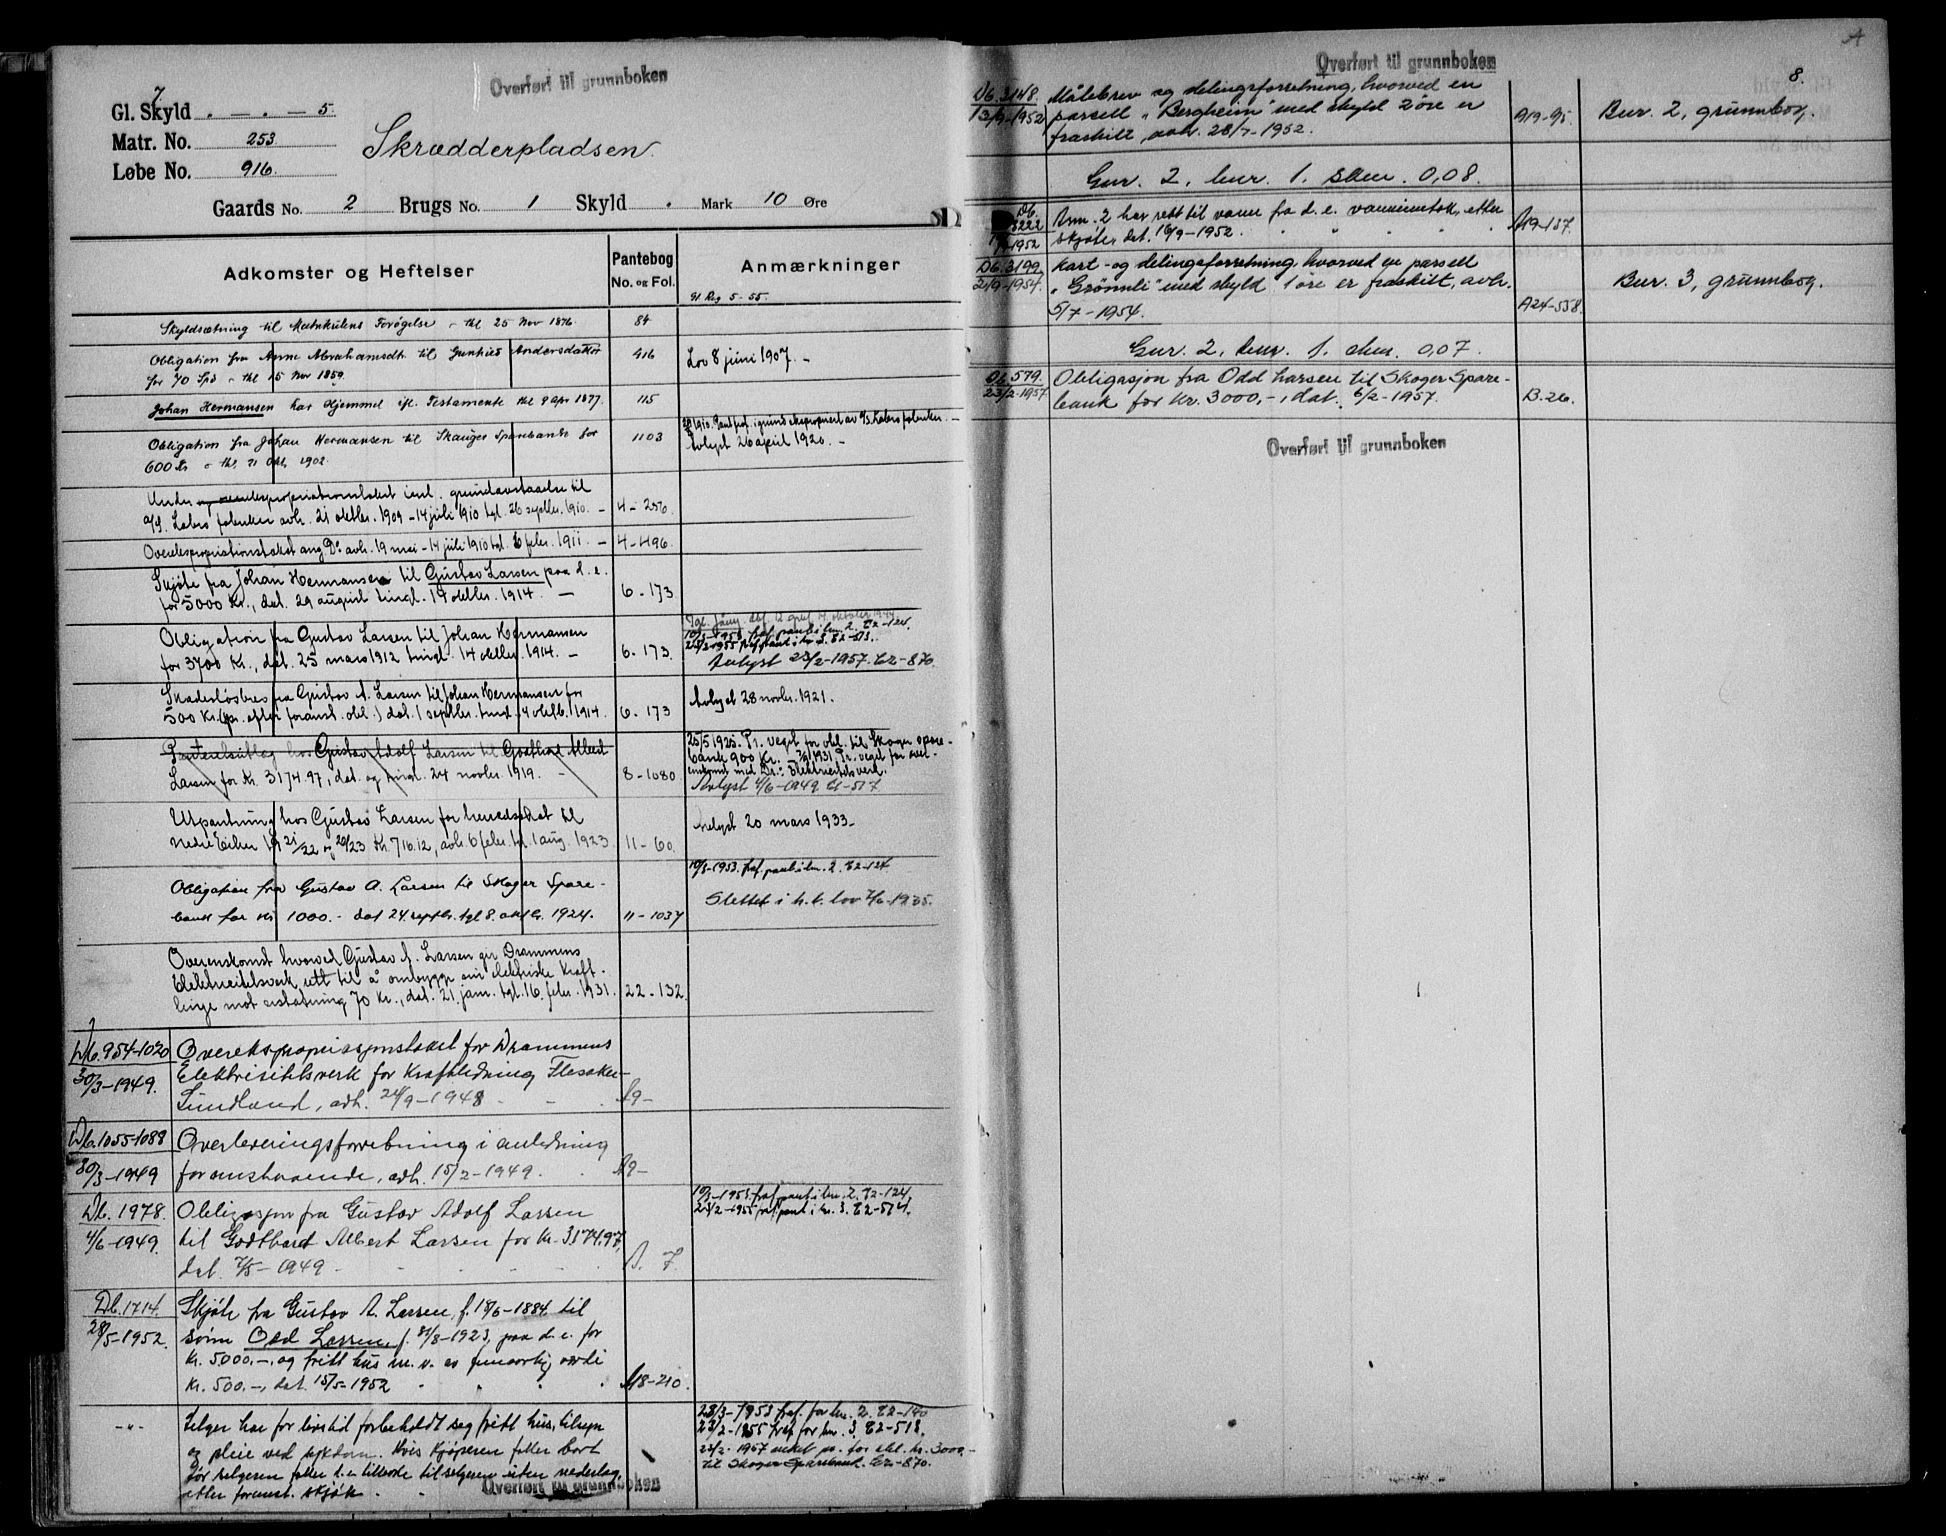 7
Overført til grunnboken
Gl. Skyld . — . — 5.
Matr. No. 253
Løbe No. 916.
Skrædderpladsen.
Gaards No. 2 Brugs No. 1 Skyld . Mark 10 Øre
Adkomster og Heftelser
Pantebog
No. og Fol.
Anmærkninger
Gl. Reg 5-55.
Skyldsætning til Matrikulens Forøgelse - thl 25 Nov 1876. 84
Obligation fra Anne Abrahamsdt. til Gunhild Andersdatter 416 Lov 8 juni 1907. -
for 70 Spd - thl 15 Nov 1859.
Johan Hermansen har Hjemmel ifl. Testamente thl 9 Apr 1877. 115
1910. Pant fraf. i grund ekspropriert av A/S Labro fabrikker. -
Obligation fra Johan Hermansen til Skauger Sparebank for 1103 Avlyst 26 april 1920. -
600 Kr - thl. 21 Okt. 1902.
Under ekspropriationstakst ang. grundavstaaelse til
A/S. Labro fabrikker avh. 21 oktbr. 1909 - 14 juli 1910 tgl. 26 septbr. 1910. - 4-256.
Overekspropriationstakst ang Do avh. 19 mai - 14 juli 1910 tgl. 6 febr. 1911. - 4-496.
Skjøte fra Johan Hermansen til Gustav Larsen paa d. e.
for 5000 Kr., dat. 29 august tingl. 14 oktbr. 1914. - 6-173
Obligation fra Gustav Larsen til Johan Hermansen
10/3-1953 fraf. pant i bnr. 2. E2-124.
23/2-1955 fraf. pant i bnr 3. E2-513.
for 3700 Kr., dat. 25 mars 1912 tingl. 14 oktbr. 1914. - 6-173. Avlyst 23/2-1957. E2-870.
Skadesløsbrev fra Gustav A. Larsen til Johan Hermansen for
500 Kr. (pr. efter foranst. obl.) dat. 1 septbr. tingl. 14 oktb. 1914. 6-173 Avlyst 28 novbr. 1921.
25/5 1925. Pr. veget for obl. til Skoger spare-
bank 900 Kr. 7/2 1931. Pr. veget for over-
enskomst med Dr.: Elektricitetsverk.
Panteutlæg hos Gustav Adolf Larsen til Godthard Albert
Larsen for Kr. 3174.97, dat. og tingl. 24 novbr. 1919. - 8-1080
Avlyst 4/6-1949. E-517
Utpantning hos Gustav Larsen for herredskat til Avlyst 20 mars 1933-
Nedre Eiker 19 21/22 og 22/23 Kr. 716.12, avh. 6 febr. tgl. 1 aug. 1923. 11-60.
10/3-1953. fraf. pant i bnr. 2. E2-124
Obligation fra Gustav A. Larsen til Skoger Spare-
Slettet i h. t. lov 7/6-1935.
bank for kr 1000.- dat 24 septbr. tgl 8. oktbr. 1924. 11-1037
Overenskomst hvorved Gustav A. Larsen gir Drammens
Elektricitetsverk rett til å ombygge sin elektriske kraft-
linje mot erstatning 70 Kr., dat. 21. jan. tgl. 16. febr. 1931. 22-132.
Db. 954-1020 Overekspropriasjonstakst for Drammens
30/3-1949. Elektrisitetsverk for kraftledning Flesaker-
Sundland, avh. 24/9-1948 - - . A9-
Db. 1055-1088 Overleveringsforretning i anledning
30/3-1949 foranstaaende, avh. 15/2-1949. . A9-
Db. 1978. Obligasjon fra Gustav Adolf Larsen
10/3-1953. fraf. pant i bnr. 2. E2-124.
23/2-1955 fraf. pant i bnr. 3. E2-514.
4/6-1949. til Godthard Albert Larsen for kr. 3174.97,
dat. 7/5-1949 - - - - - B. 7.
Db. 1714. Skjøte fra Gustav A. Larsen, f. 18/6-1884 til
28/5-1952. sønn Odd Larsen, f. 31/8-1923, paa d. e. for
Kr. 5000.-, og fritt hus m. v. av femaarlig verdi
Kr. 500.-, dat. 15/5-1952 " " " . A18-210.
-"- Selger har for livstid forbeholdt seg fritt hus, tilsyn
og pleie ved sykdom. Hvis kjøperen faller bort
før selgeren faller d. e. tilbake til selgeren uten vederlag,
etter foranst. skjøte . -
23/3-1953 fraf. for bnr. 2. E2-140
23/2-1955 fraf for bnr. 3. E2-518.
23/2-1957 veket pr. for obl. kr. 3000.-
til Skoger Sparebank. E2-870.
Overført til grunnboken
A
8.
Overført til grunnboken
Db. 3148 Målebrev og delingsforretning, hvorved en
13/9-1952 parsell "Bergheim" med skyld 2 øre er A19-95. Bnr. 2, grunnbog.
fraskilt, avh. 28/7-1952.
Gnr. 2, bnr. 1. skm. 0,08.
Db. 3222 Brnr. 2 har rett til vann fra d. e. vanninntak, etter
1952 skjøte, dat. 16/9-1952. " " " " . A19-137.
Db. 3199 Kart- og delingsforretning hvorved en parsell
21/9-1954. "Grønnli" med skyld 1 øre er fraskilt, avh. Bnr. 3, grunnbog.
5/7-1954. A24-558.
Gnr. 2, bnr. 1. skm. 0,07.
Db. 579. Obligasjon fra Odd Larsen til Skoger Spare-
23/2-1957. bank for kr. 3000,-, dat. 6/2-1957. B. 26.
Overført til grunnboken